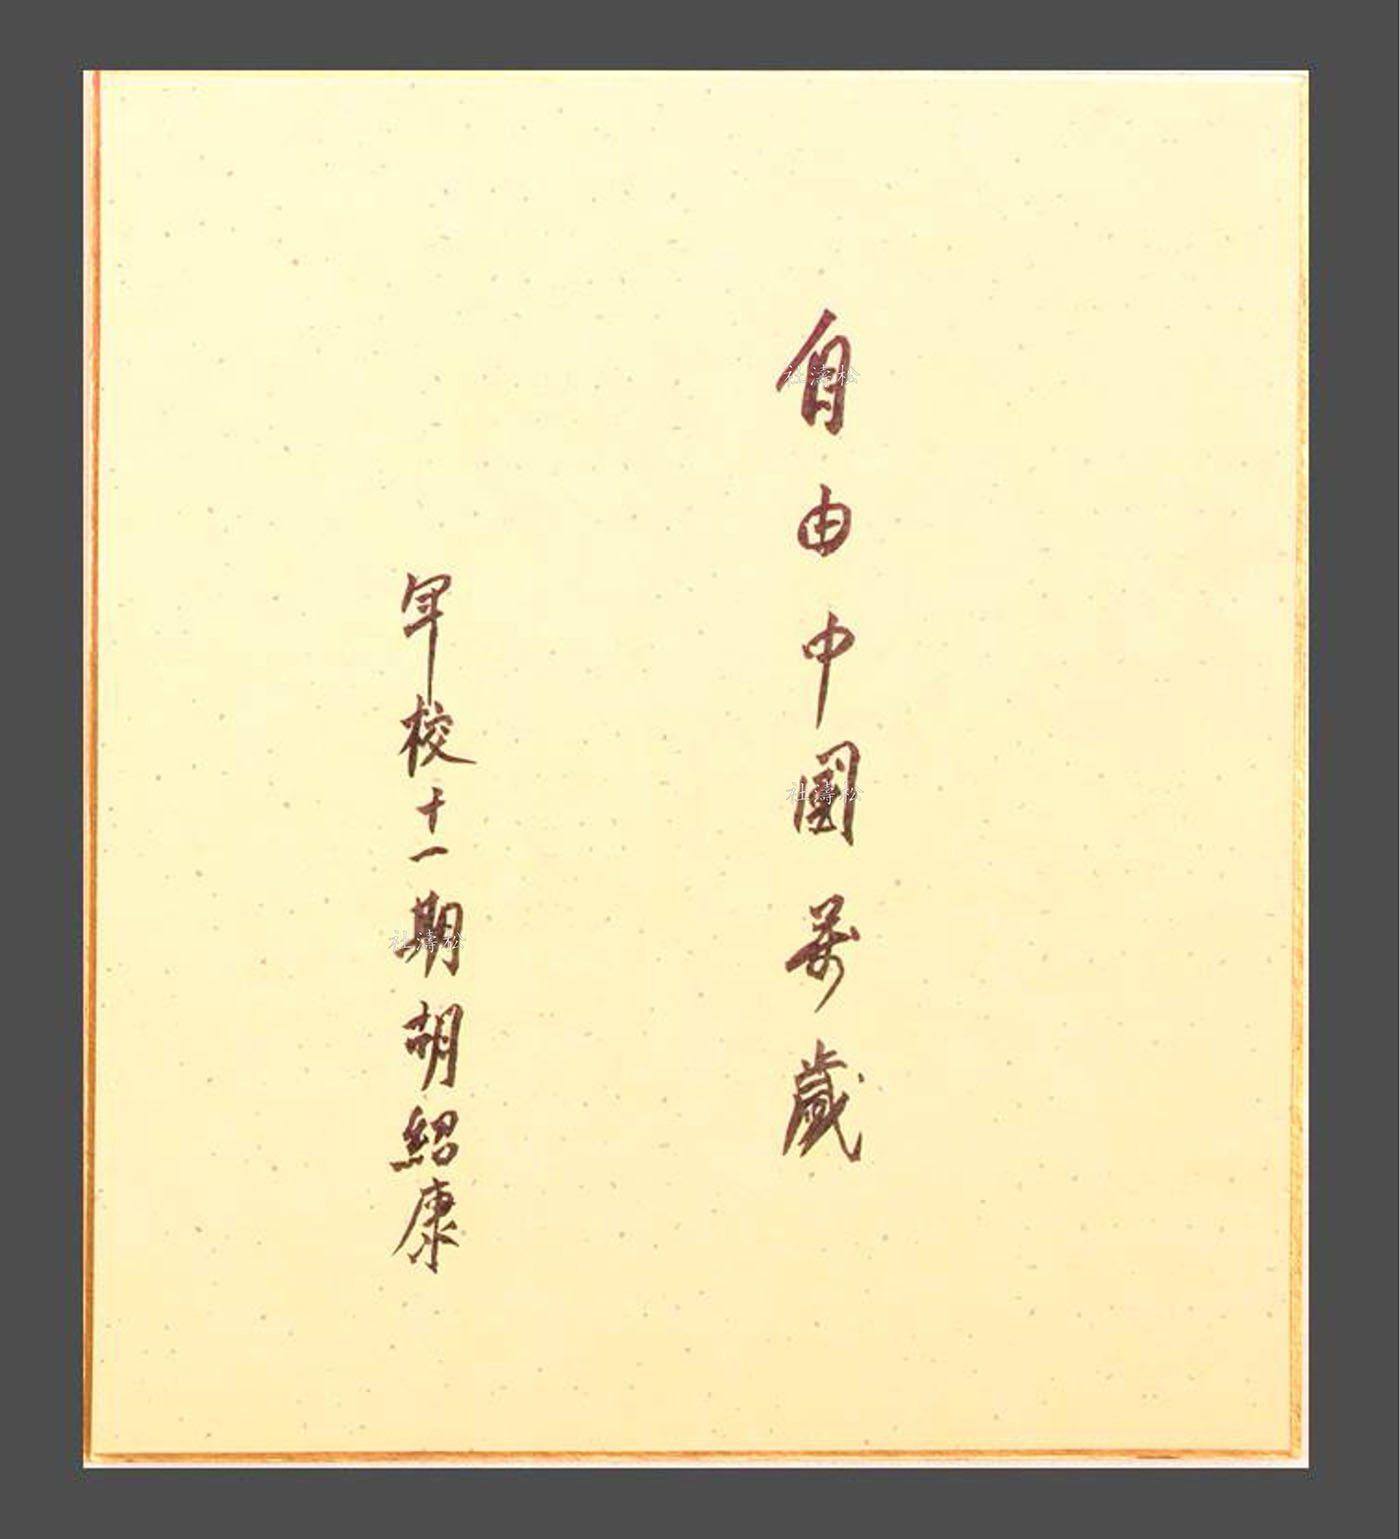 自由中國萬歲
軍校十一期胡紹康
杜濤松
杜濤松
杜濤松